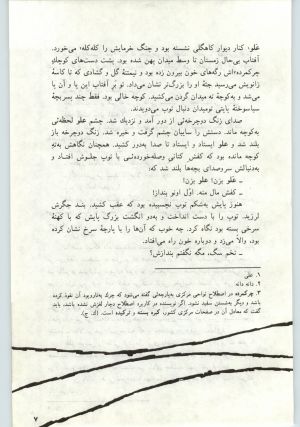 غلو۱ کنار دیوار کاهگلی نشسته بود و چنگ خرمایش را کله‌کله۲ می‌خورد.
آفتاب بی‌حال زمستان تا وسط میدان پهن شده بود. پشت دست‌های کوچک
چرکمرده۳اش رگه‌های خون بیرون زده بود و نیمتنهٔ گل و گشادی که تا کاسهٔ
زانویش می‌رسید جثهٔ او را بزرگ‌تر نشان می‌داد. تو بر آفتاب این پا و آن پا
می‌شد و به‌کوچه ته میدان گردن می‌کشید. کوچه خالی بود. فقط چند پسربچهٔ
سیاسوختهٔ پاپتی تومیدان دنبال توپ می‌دویدند.
صدای زنگ دوچرخه‌ئی از دور آمد و نزدیک شد. چشم غلو لحظه‌ئی
به‌کوچه ماند. دستش را سایبان چشم گرفت و خیره شد. زنگ دوچرخه باز
بلند شد و غلو ایستاد و ایستاد تا صدا به‌دور کشید. همچنان نگاهش به‌تهِ
کوچه مانده بود که کفش کتانی وصله‌خورده‌ئی با توپ جلوش افتاد و
به‌دنبالش سروصدای بچه‌ها بلند شد که:
ــ غلو بزن! غلو بزن!
ــ کفش مال منه. اوّل اونو بنداز!
هنوز پایش به‌شکم توپ نچسبیده بود که عقب کشید. بند جگرش
لرزید. توپ را با دست انداخت و به‌دو انگشت بزرگ پایش که با کهنهٔ
سرخی بسته بود نگاه کرد. چه خوب که آن‌ها را با پارچهٔ سرخ نشان کرده
بود. والا می‌زد و دوباره خون راه می‌افتاد.
ــ تخم سگ، مگه نگفتم بندازش؟
۱. علی
۲. دانه دانه
۳. چرکمرده در اصطلاح نواحی مرکزی به‌پارچه‌ئی گفته می‌شود که چرک به‌تاروپود آن نفوذ کرده
باشد و دیگر به‌شستن سفید نشود. اگر نویسنده در کاربرد اصطلاح دچار لغزش نشده باشد، باید
گفت که معادل آن در صفحات مرکزی کشور، کبره بسته و ترکیده است. (ک. ج).
۷